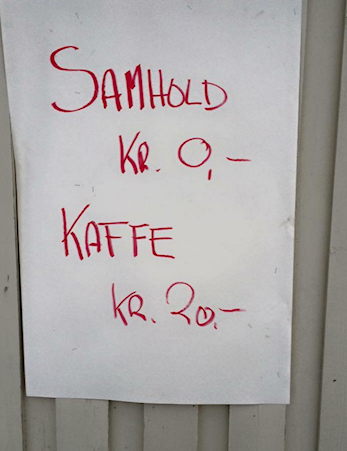 SAMHOLD
KR. 0,-
KAFFE
KR. 20,-